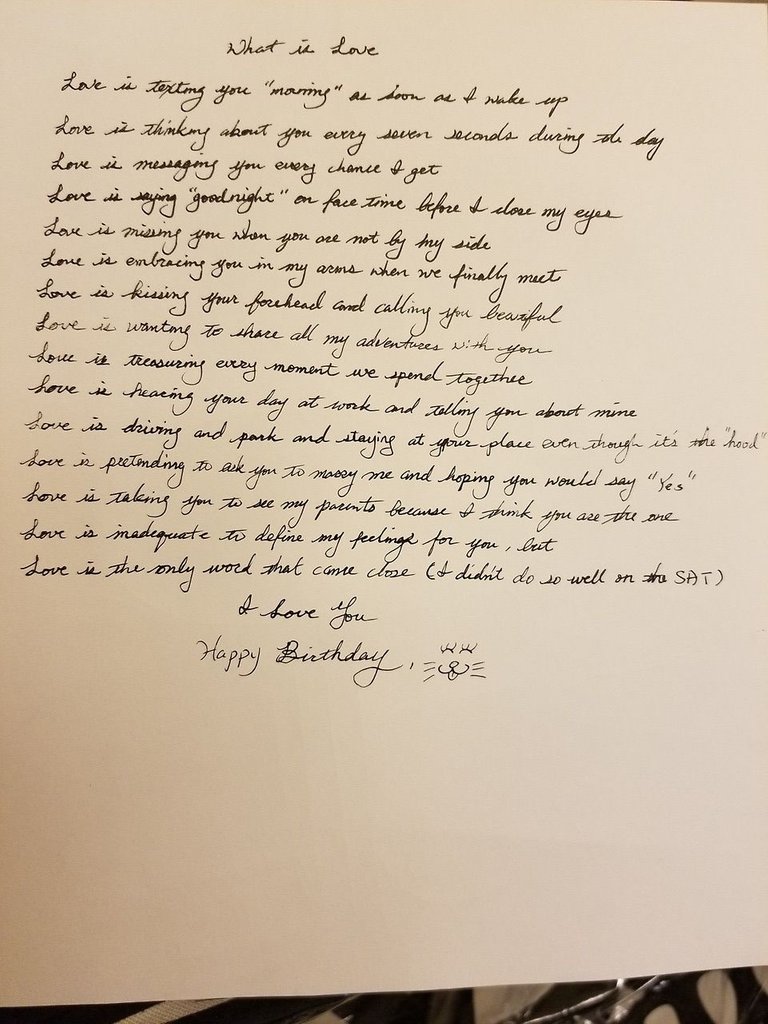 What is Love
Love is texting you "morning" as soon as I wake up
Love is thinking about you every seven seconds during the day
Love is messaging you every chance I get
Love is saying "goodnight" on face time before I close my eyes
Love is missing you when you are not by my side
Love is embracing you in my arms when we finally meet
Love is kissing your forehead and calling you beautiful
Love is wanting to share all my adventures with you
Love is treasuring every moment we spend together
Love is hearing your day at work and telling you about mine
Love is driving and park and staying at your place even though it's the "hood"
Love is pretending to ask you to marry me and hoping you would say "Yes"
Love is taking you to see my parents because I think you are the one
Love is inadequate to define my feelings for you, but
Love is the only word that came close (I didn't do so well on the SAT)
I Love You
Happy Birthday,